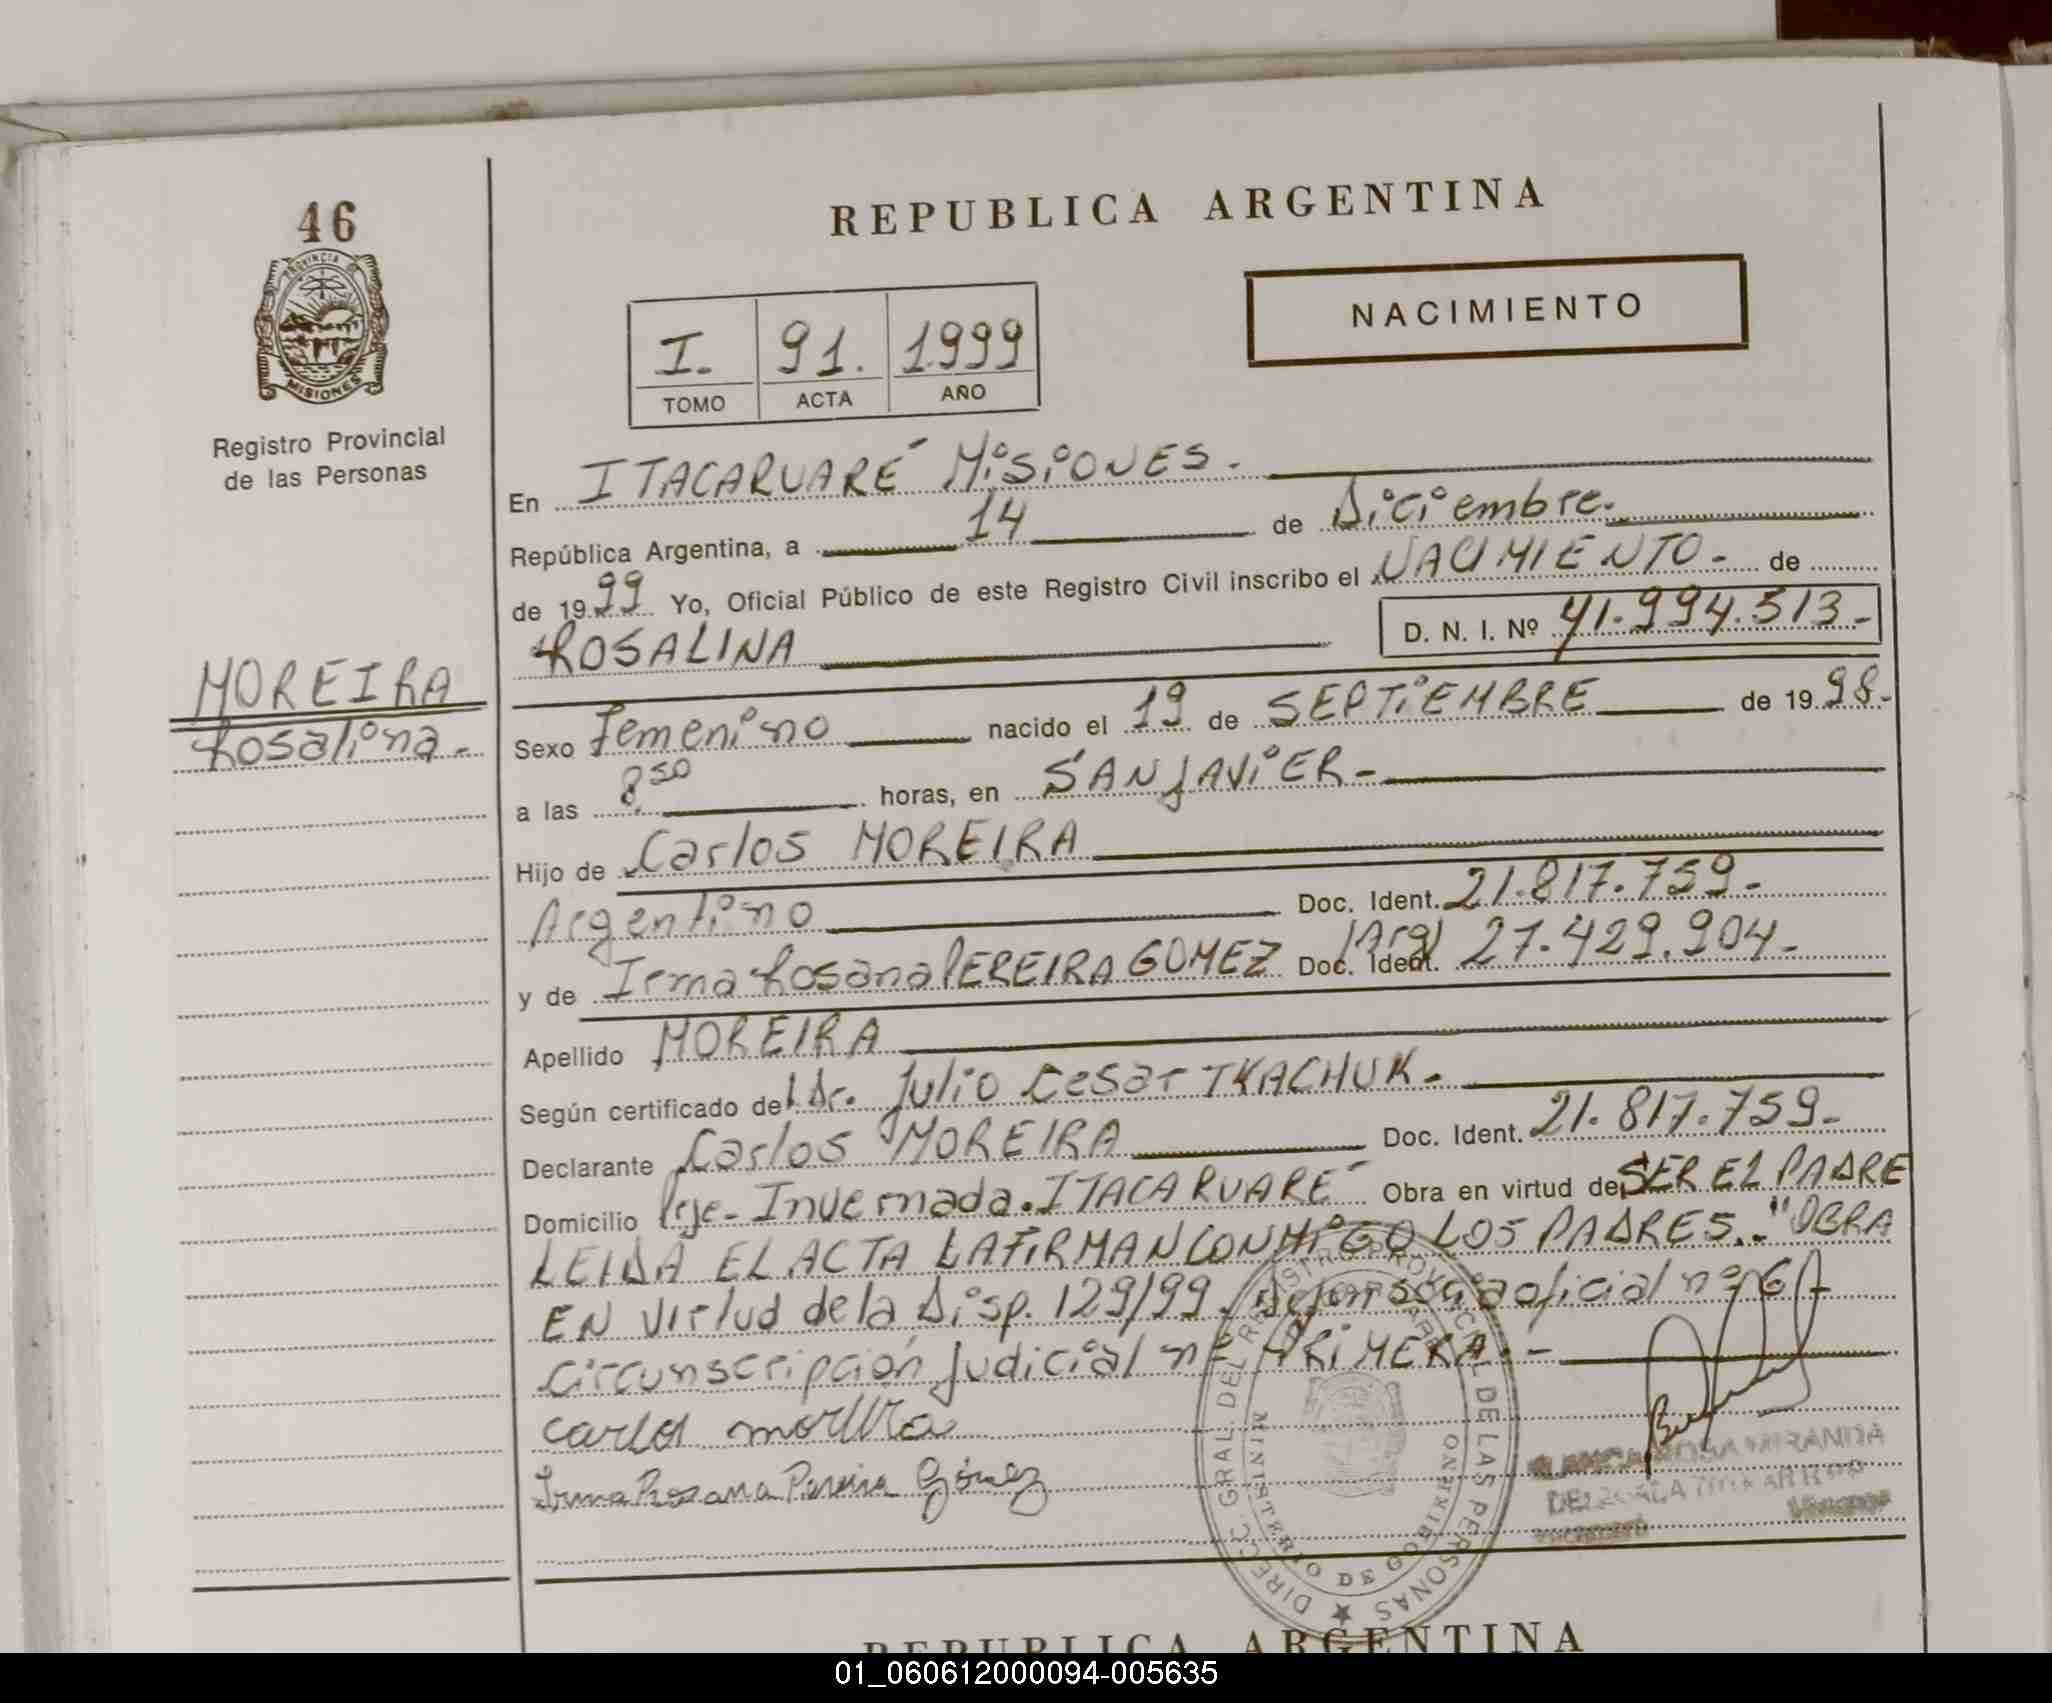 46
PROVINCIA DE
MISIONES
Registro Provincial
de las Personas
MOREIRA
Rosalina.-
REPUBLICA ARGENTINA
NACIMIENTO
I. 91. 1999
TOMO ACTA AÑO
En ITACARUARÉ MISIONES.
República Argentina, a 14 de Diciembre.
de 1999 Yo, Oficial Público de este Registro Civil inscribo el NACIMIENTO.- de
ROSALINA D. N. I. Nº 41.994.513.-
Sexo Femenino nacido el 19 de SEPTIEMBRE de 1998.-
a las 8.50 horas, en SAN JAVIER.-
Hijo de Carlos MOREIRA
Argentino Doc. Ident. 21.817.759.-
y de Irma Rosana PEREIRA GOMEZ (Arg) Doc. Ident. 27.429.904.-
Apellido MOREIRA
Según certificado del Dr. Julio Cesar TKACHUK.-
Declarante Carlos MOREIRA Doc. Ident. 21.817.759.-
Domicilio Pje- Invernada. ITACARUARÉ Obra en virtud de SER EL PADRE
LEIDA EL ACTA LA FIRMAN CONMIGO LOS PADRES.- "OBRA
EN virtud de la Disp. 129/99. Defensoría oficial nº
circunscripción judicial nº PRIMERA.-
carlos moreira
Irma Rosana Pereira Gómez
DIRECC. GRAL. DEL REGISTRO PROVINCIAL DE LAS PERSONAS
MINISTERIO DE GOBIERNO
ROSA MIRANDA
DELEGADA TITULAR
REPUBLICA ARGENTINA
01_060612000094-005635